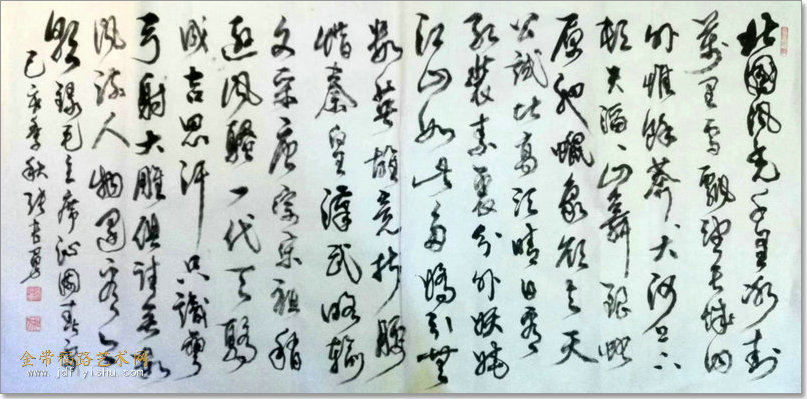 北國风光千里冰封
萬里雪飘望长城内
外惟餘莽莽大河上下
顿失滔滔山舞银蛇
原驰蠟象欲与天
公試比高须晴日看
红装素裹分外妖娆
江山如此多嬌引無
数英雄竞折腰
惜秦皇漢武略输
文采唐宗宋祖稍
逊风騷一代天驕
成吉思汗只識彎
弓射大雕俱往矣数
风流人物還看今
朝録毛主席沁園春雪
己亥季秋
金带福路艺术网
www.jdflyishu.com